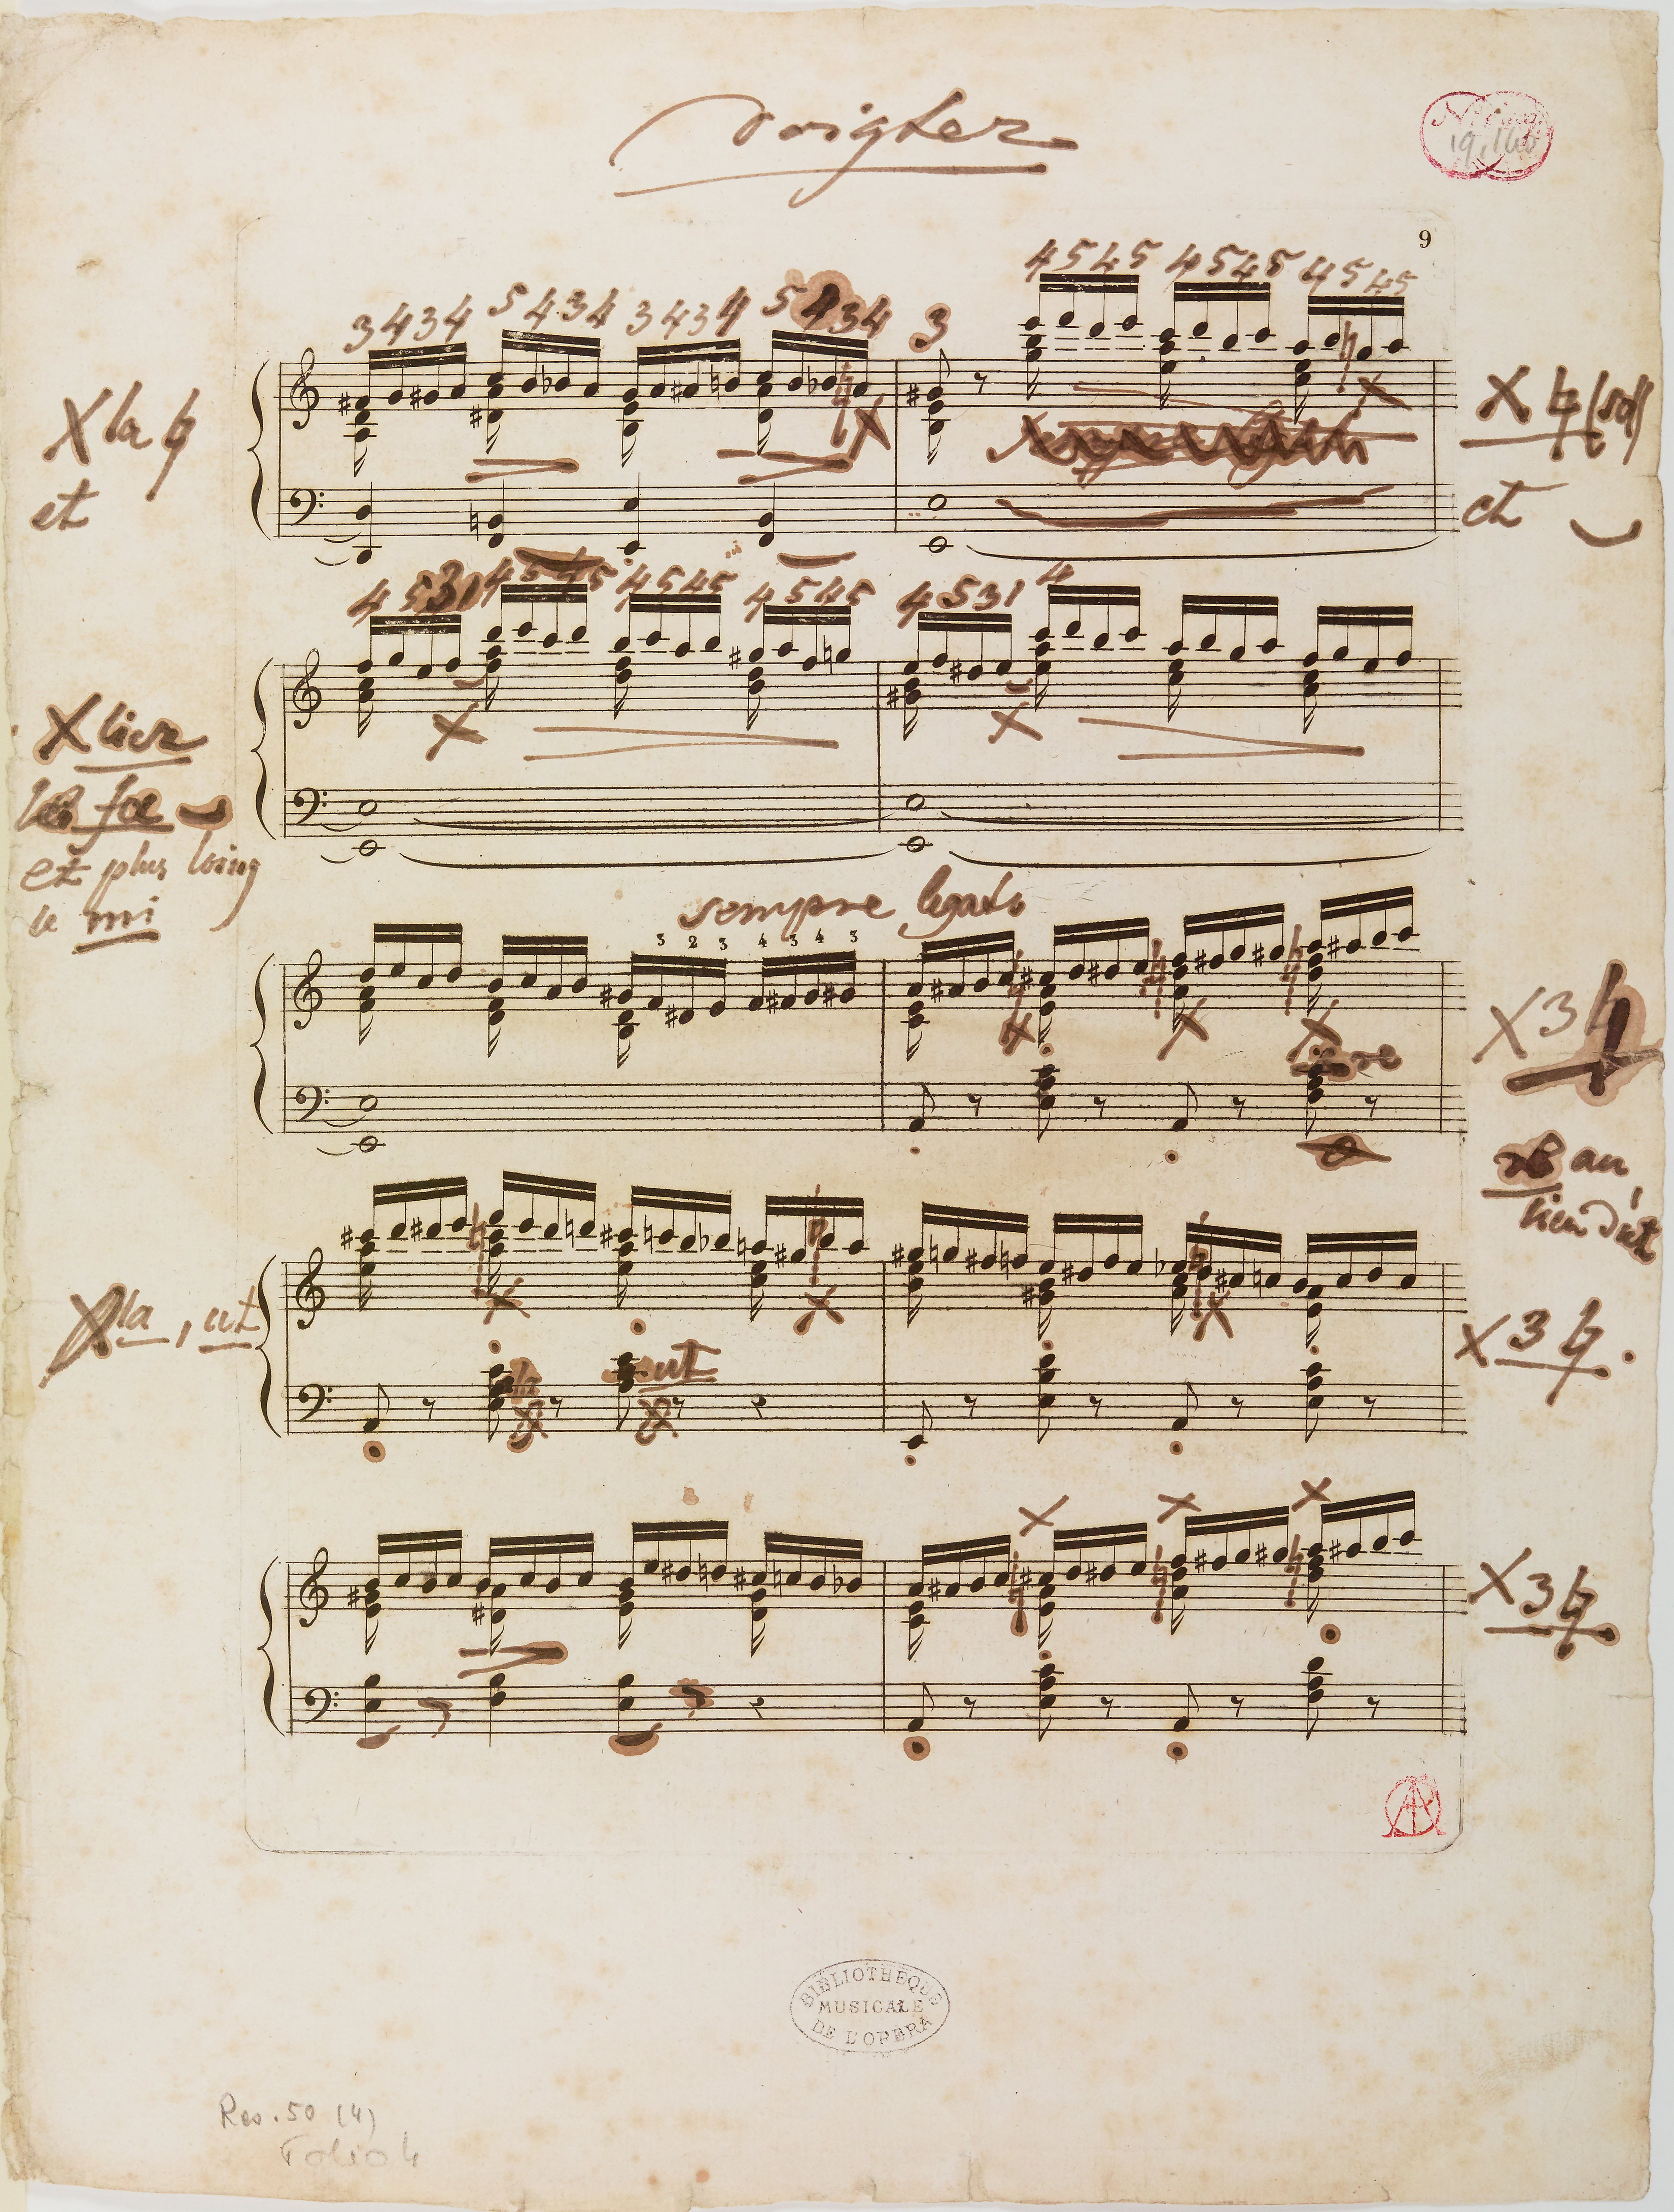 doigter
19,140
9
3 4 3 4 5 4 3 4 3 4 3 4 5 4 3 4 3 4 5 4 5 4 5 4 5 4 5 4 5
X la ♮
et
X ♮ (sol)
et
4 5 3 1 4 5 4 5 4 5 4 5 4 5 4 5 4 5 3 1 4
X lier
les fa
et plus loing
le mi
sempre legato
3 2 3 4 3 4 3
X 3 ♮
ré
ré au
lieu d'ut
X la, ut
la
ut
X 3 ♮.
X 3 ♮.
BIBLIOTHÈQUE
MUSICALE
DE L'OPÉRA
Res. 50 (4)
Folio 4